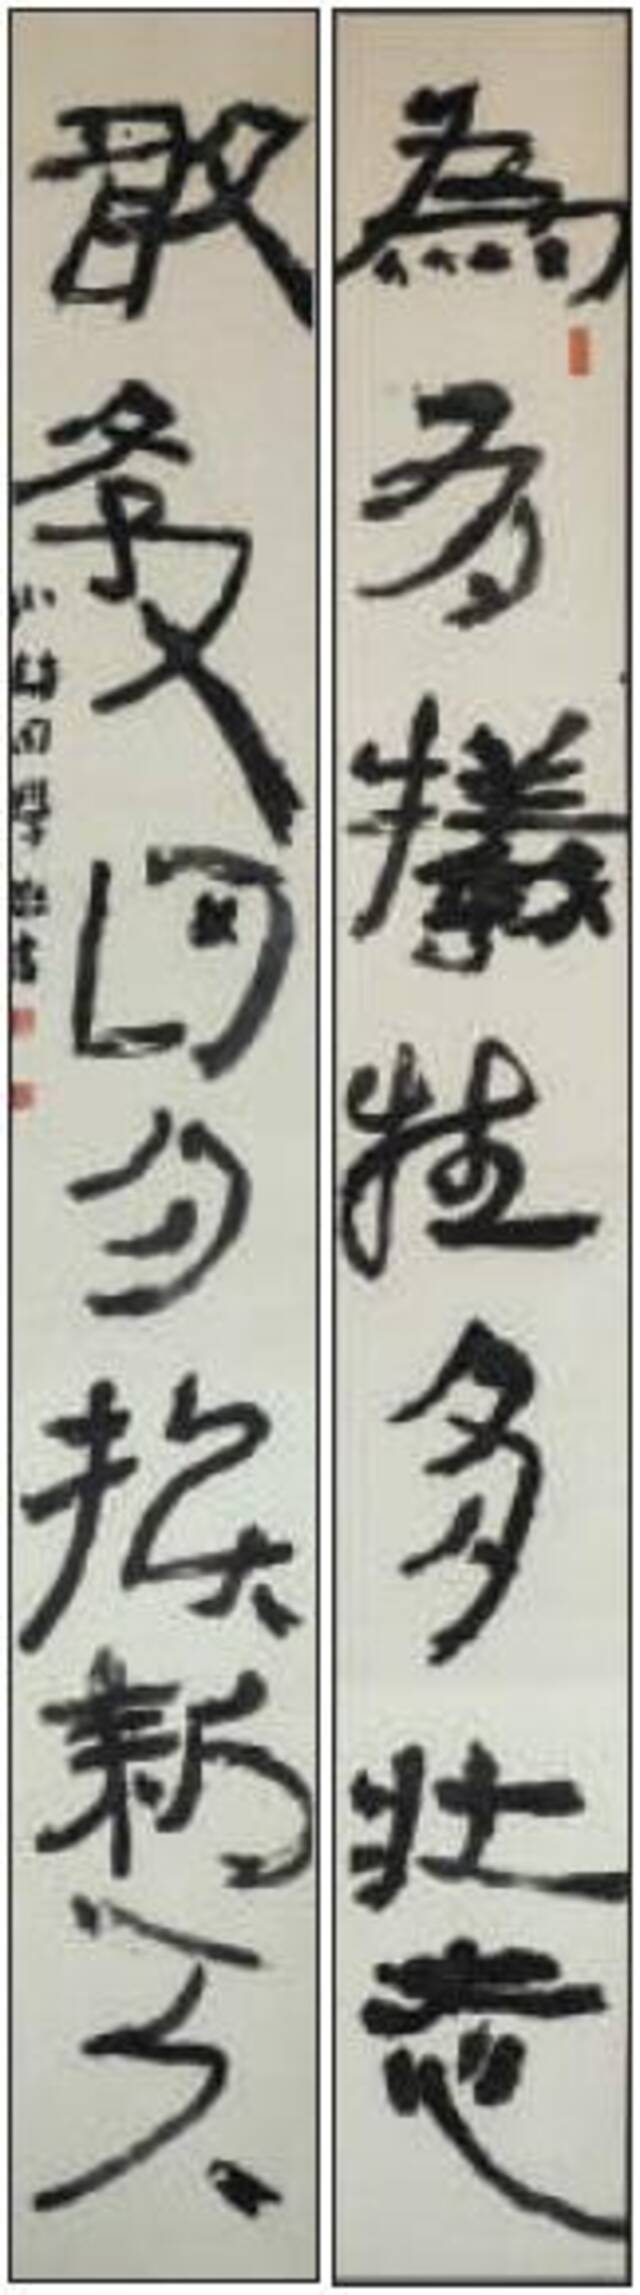 為有犧牲多壯志
敢教日月換新天